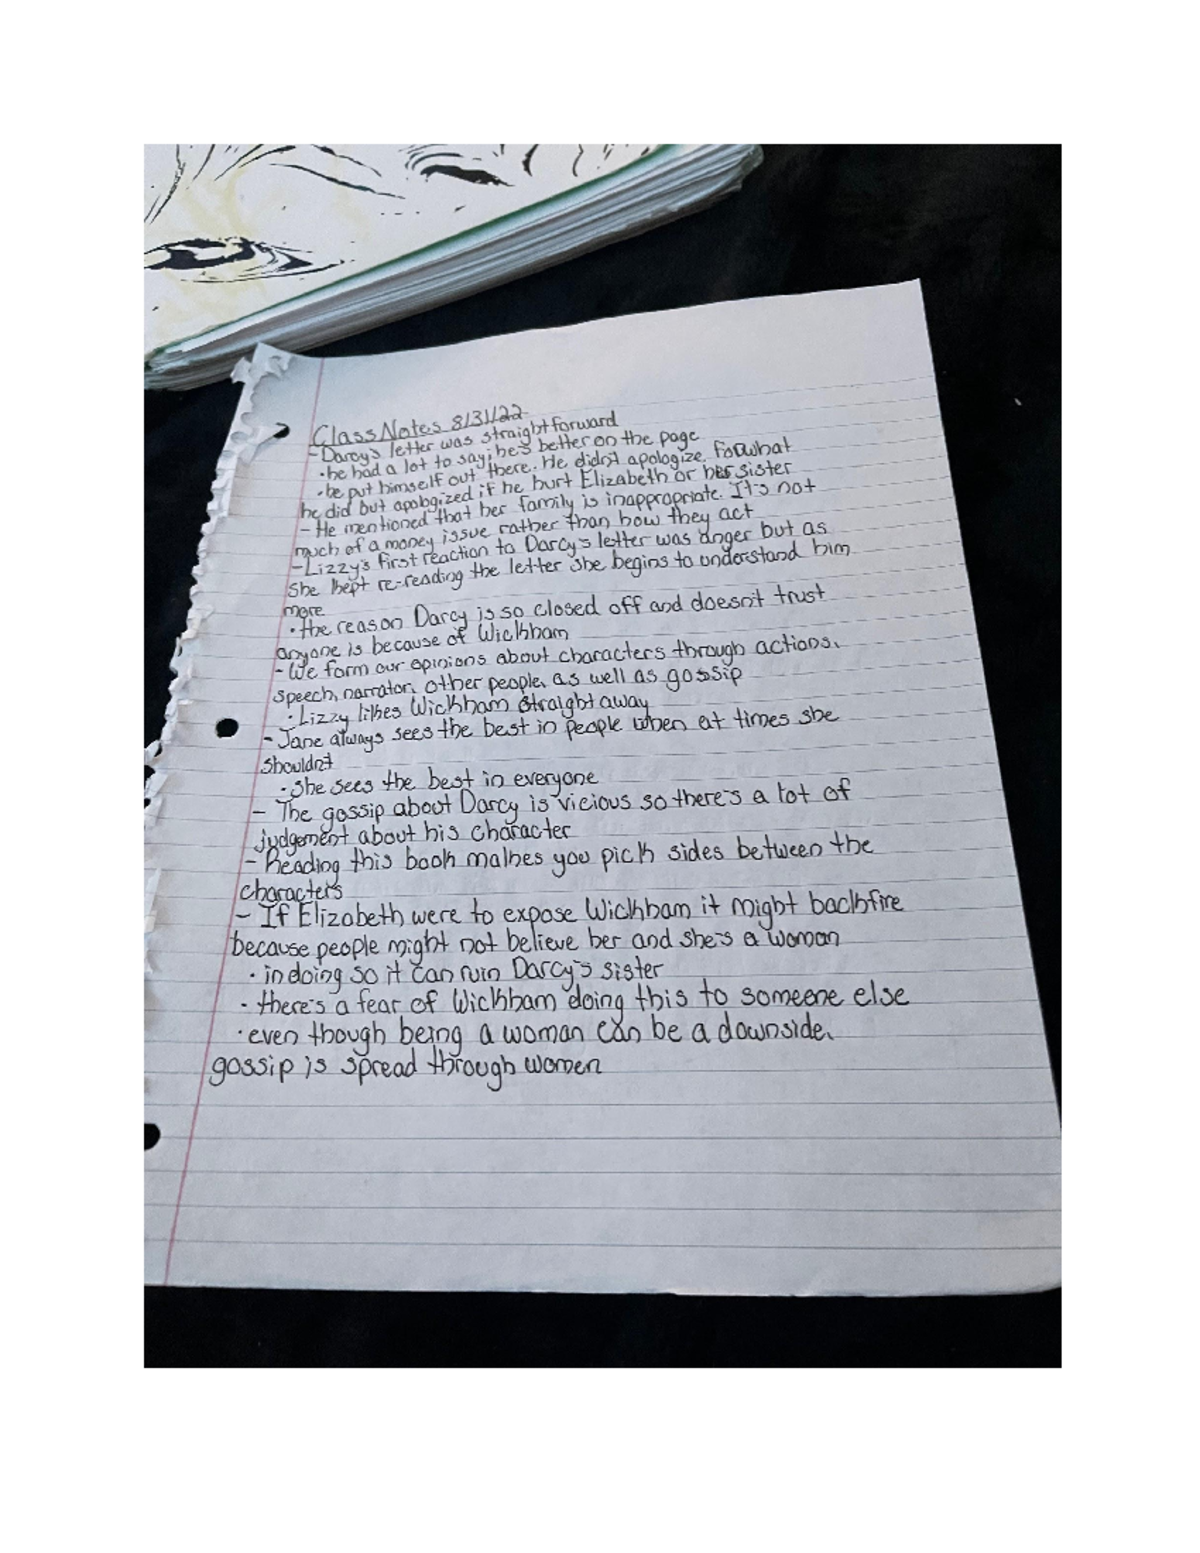 Class Notes 8/31/22
- Darcy's letter was straight forward
• he had a lot to say; he's better on the page
• he put himself out there. He didn't apologize for what
he did but apologized if he hurt Elizabeth or her sister
- He mentioned that her family is inappropriate. It's not
much of a money issue rather than how they act
- Lizzy's first reaction to Darcy's letter was anger but as
she kept re-reading the letter she begins to understand him
more
• the reason Darcy is so closed off and doesn't trust
anyone is because of Wickham
- We form our opinions about characters through actions,
speech, narrator, other people, as well as gossip
• Lizzy likes Wickham straight away
- Jane always sees the best in people when at times she
shouldn't
• she sees the best in everyone
- The gossip about Darcy is vicious so there's a lot of
judgement about his character
- Reading this book makes you pick sides between the
characters
- If Elizabeth were to expose Wickham it might backfire
because people might not believe her and she's a woman
• in doing so it can ruin Darcy's sister
• there's a fear of Wickham doing this to someone else
• even though being a woman can be a downside,
gossip is spread through women